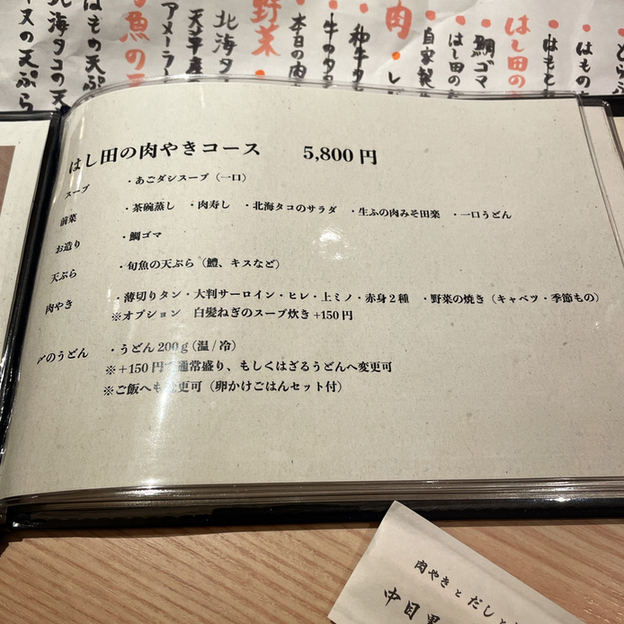 はし田の肉やきコース 5,800円
スープ ・あごダシスープ（一口）
前菜 ・茶碗蒸し ・肉寿し ・北海タコのサラダ ・生ふの肉みそ田楽 ・一口うどん
お造り ・鯛ゴマ
天ぷら ・旬魚の天ぷら（鱧、キスなど）
肉やき ・薄切りタン・大判サーロイン・ヒレ・上ミノ・赤身2種 ・野菜の焼き（キャベツ・季節もの）
※オプション 白髪ねぎのスープ炊き+150円
〆のうどん ・うどん200g（温/冷）
※+150円で通常盛り、もしくはざるうどんへ変更可
※ご飯へも変更可（卵かけごはんセット付）
はし田の
鯛ゴマ
はし田の
自家製
肉
和牛の
牛のタタ
本日の肉
野菜
北海タ
天草産
アメーラ
魚の天
はもの天ぷら
北海タコの天ぷら
の天ぷら
肉やきとだしと
中目黒